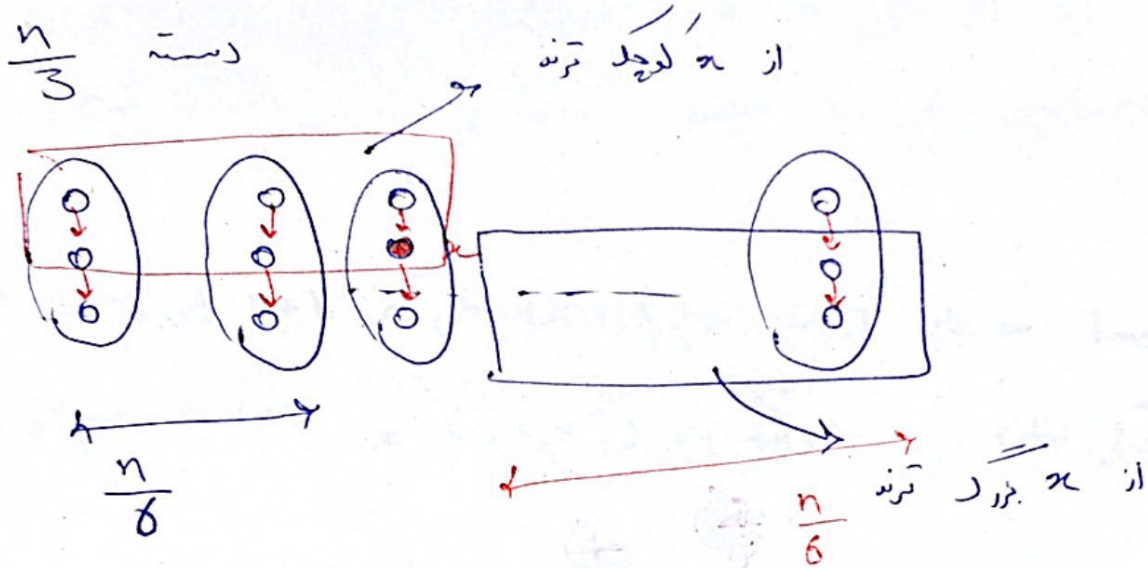 n/3 دسته
از x کوچک ترند
x
n/6
n/6
از x بزرگ ترند